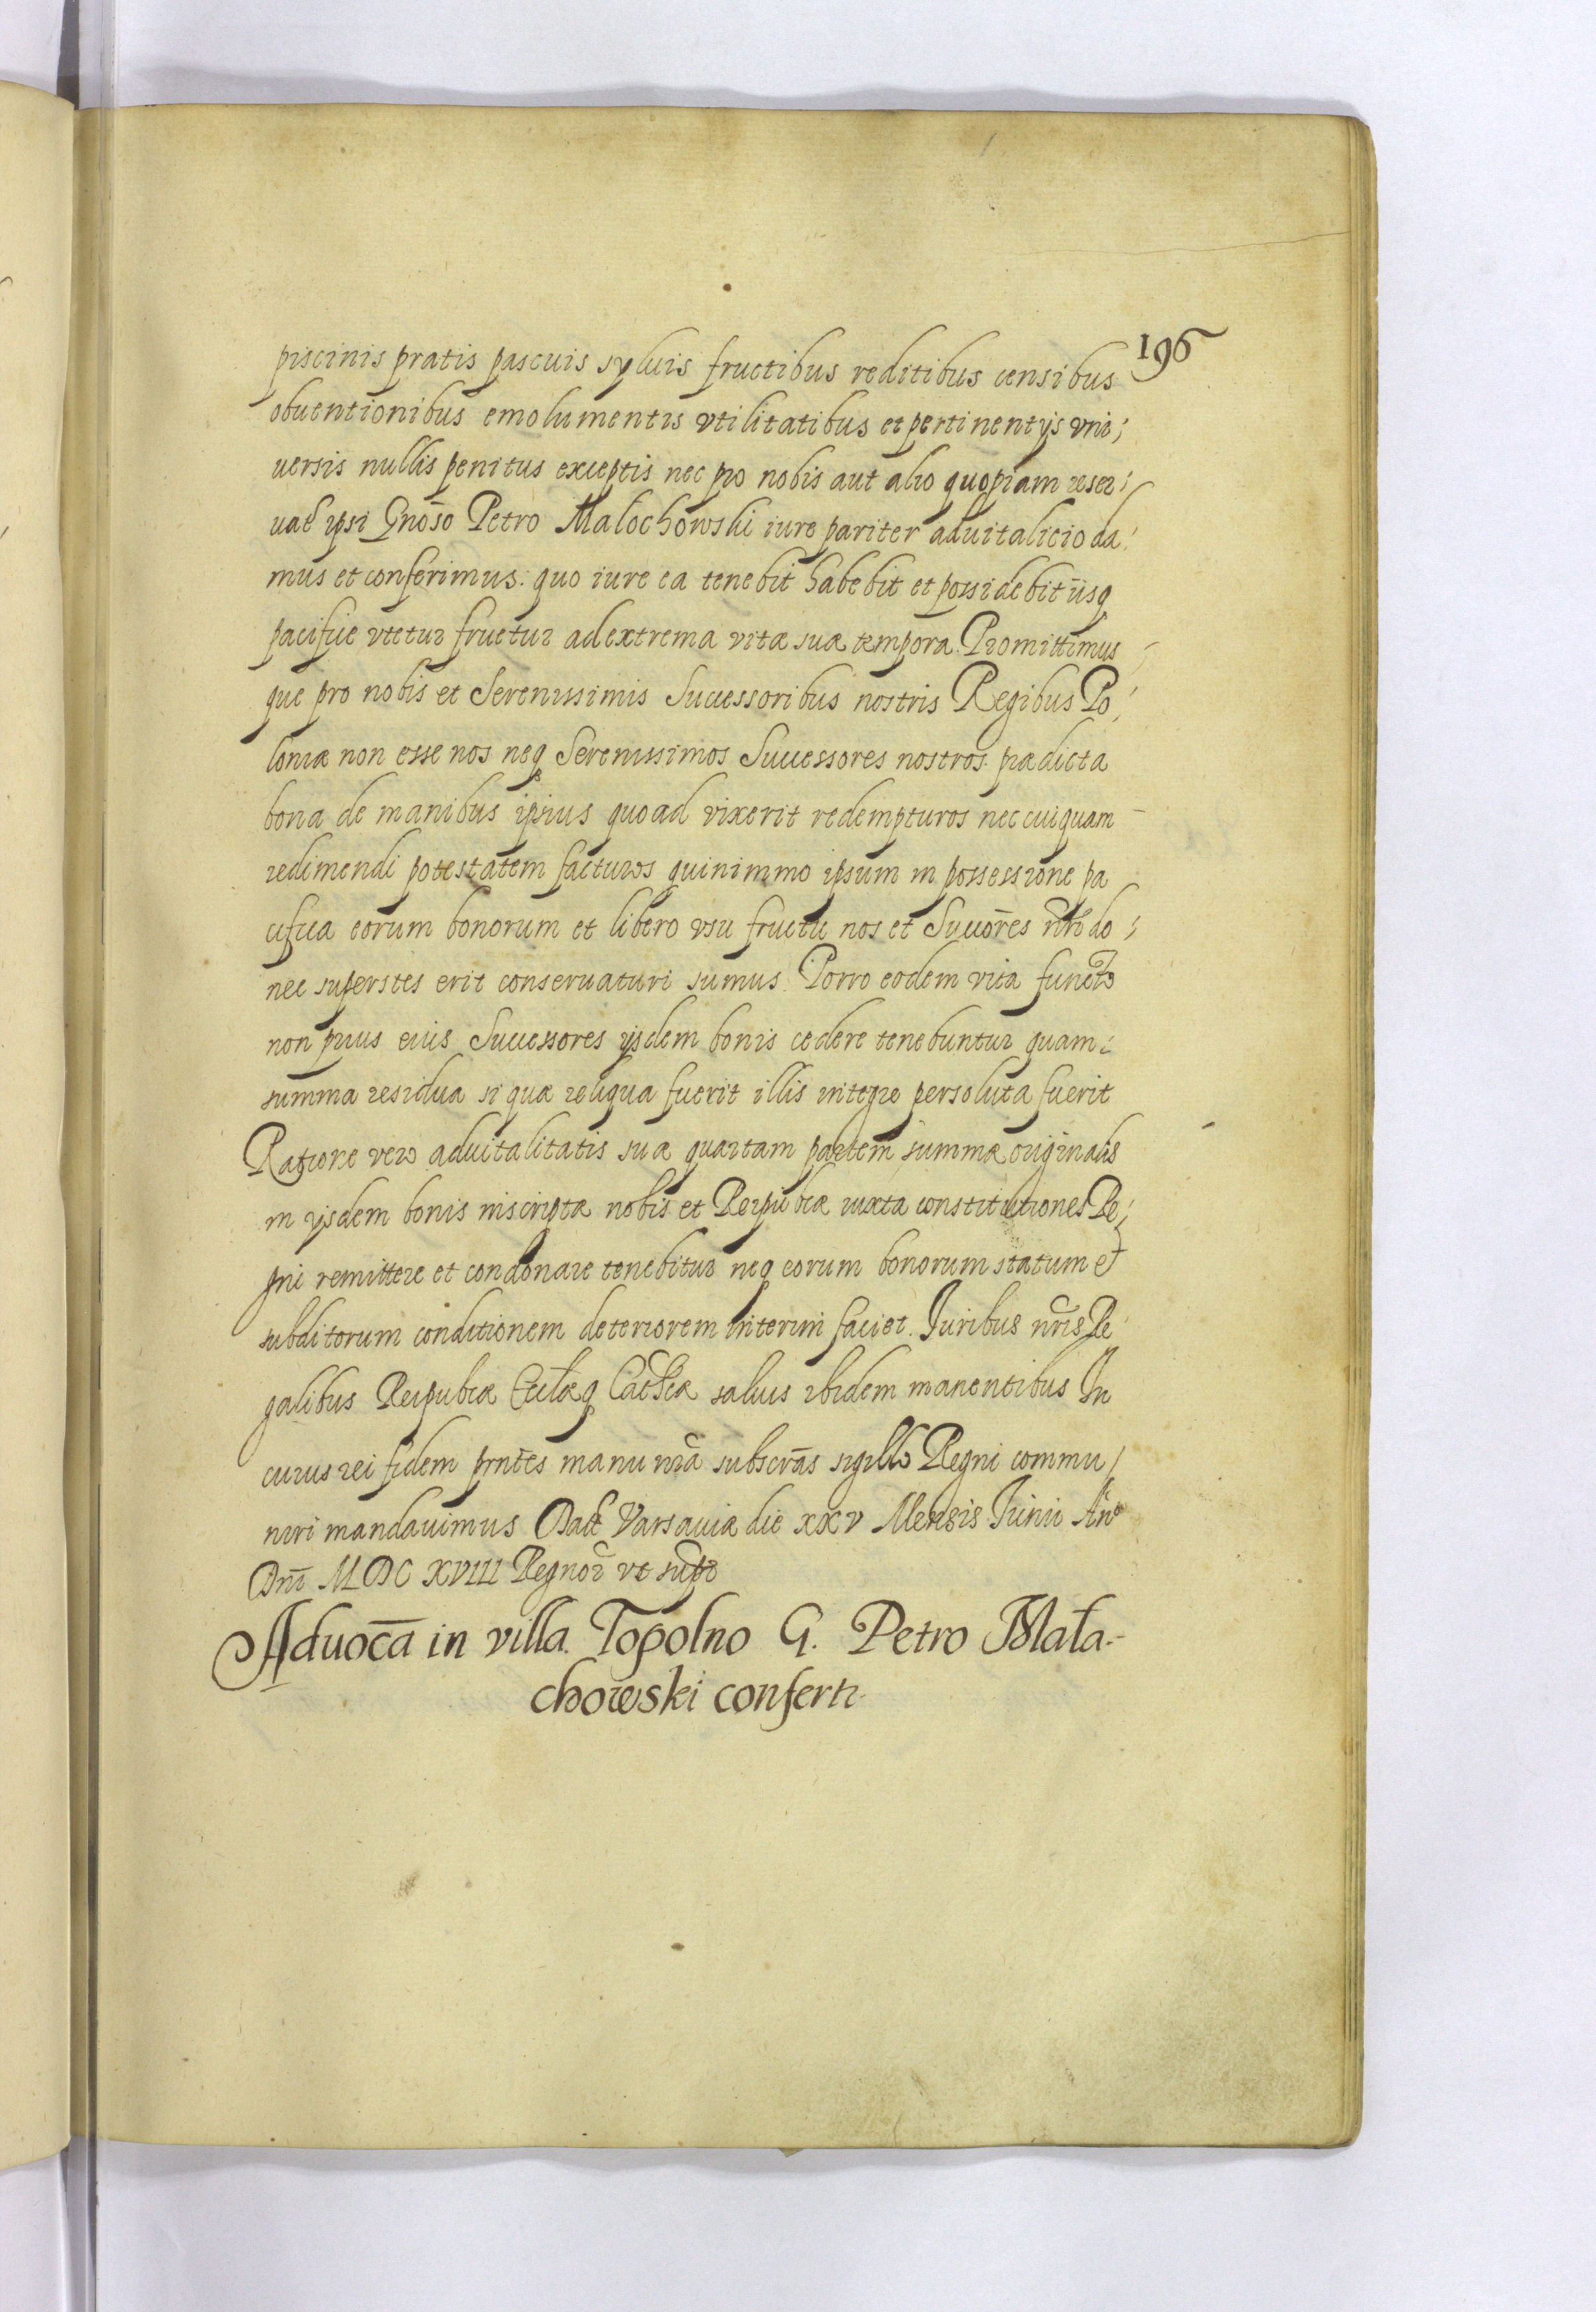 196
piscinis pratis pascuis syluis fructibus reditibus censibus
obuentionibus emolumentis vtilitatibus et pertinentijs vni;
uersis nullis penitus exceptis nec pro nobis aut alio quopiam reser;
uat ipsi Gnoso Petro Małochowski iure pariter aduitalicio da;
mus et conferimus: quo iure ea tenebit habebit et possidebit iisq
pacifice vtetur fruetur ad extrema vitæ suæ tempora. Promittimus
que pro nobis et Serenissimis Successoribus nostris Regibus Po;
loniæ non esse nos neq Serenissimos Successores nostros prædicta
bona de manibus ipsius quoad vixerit redempturos nec cuiquam
redimendi potestatem facturos quinimmo ipsum in possessione pa
cifica eorum bonorum et libero vsu fructu nos et Succōres nr̄i do;
nec superstes erit conseruaturi sumus. Porro eodem vita functo
non prius eius Successores ijsdem bonis cedere tenebuntur quam;
summa residua si quæ reliqua fuerit illis integre persoluta fuerit
Ratione vero aduitalitatis suæ quartam partem summæ originalis
in ijsdem bonis inscriptæ nobis et Reipubcæ iuxta constitutiones Re;
gni remittere et condonare tenebitur neq eorum bonorum statum et
subditorum conditionem deteriorem interim faciet. Juribus nr̄is Re
galibus Reipubcæ Ecclæq Cathcæ saluis ibidem manentibus In
cuius rei fidem pn̄tes manu nr̄a subscr̄as sigillo Regni commu/
niri mandauimus Dat Varsauiæ die XXV Mensis Junii Año
Dn̄i MDCXVIII Regnor̄ vt supr̄
Aduoc̄a in villa Topolno G. Petro Mała-
chowski confert̄r.